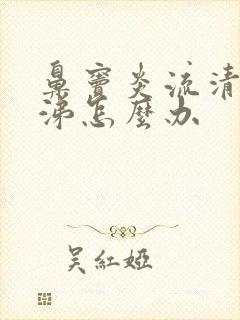 鼻窦炎流清
涕怎麼办
吴紅婭